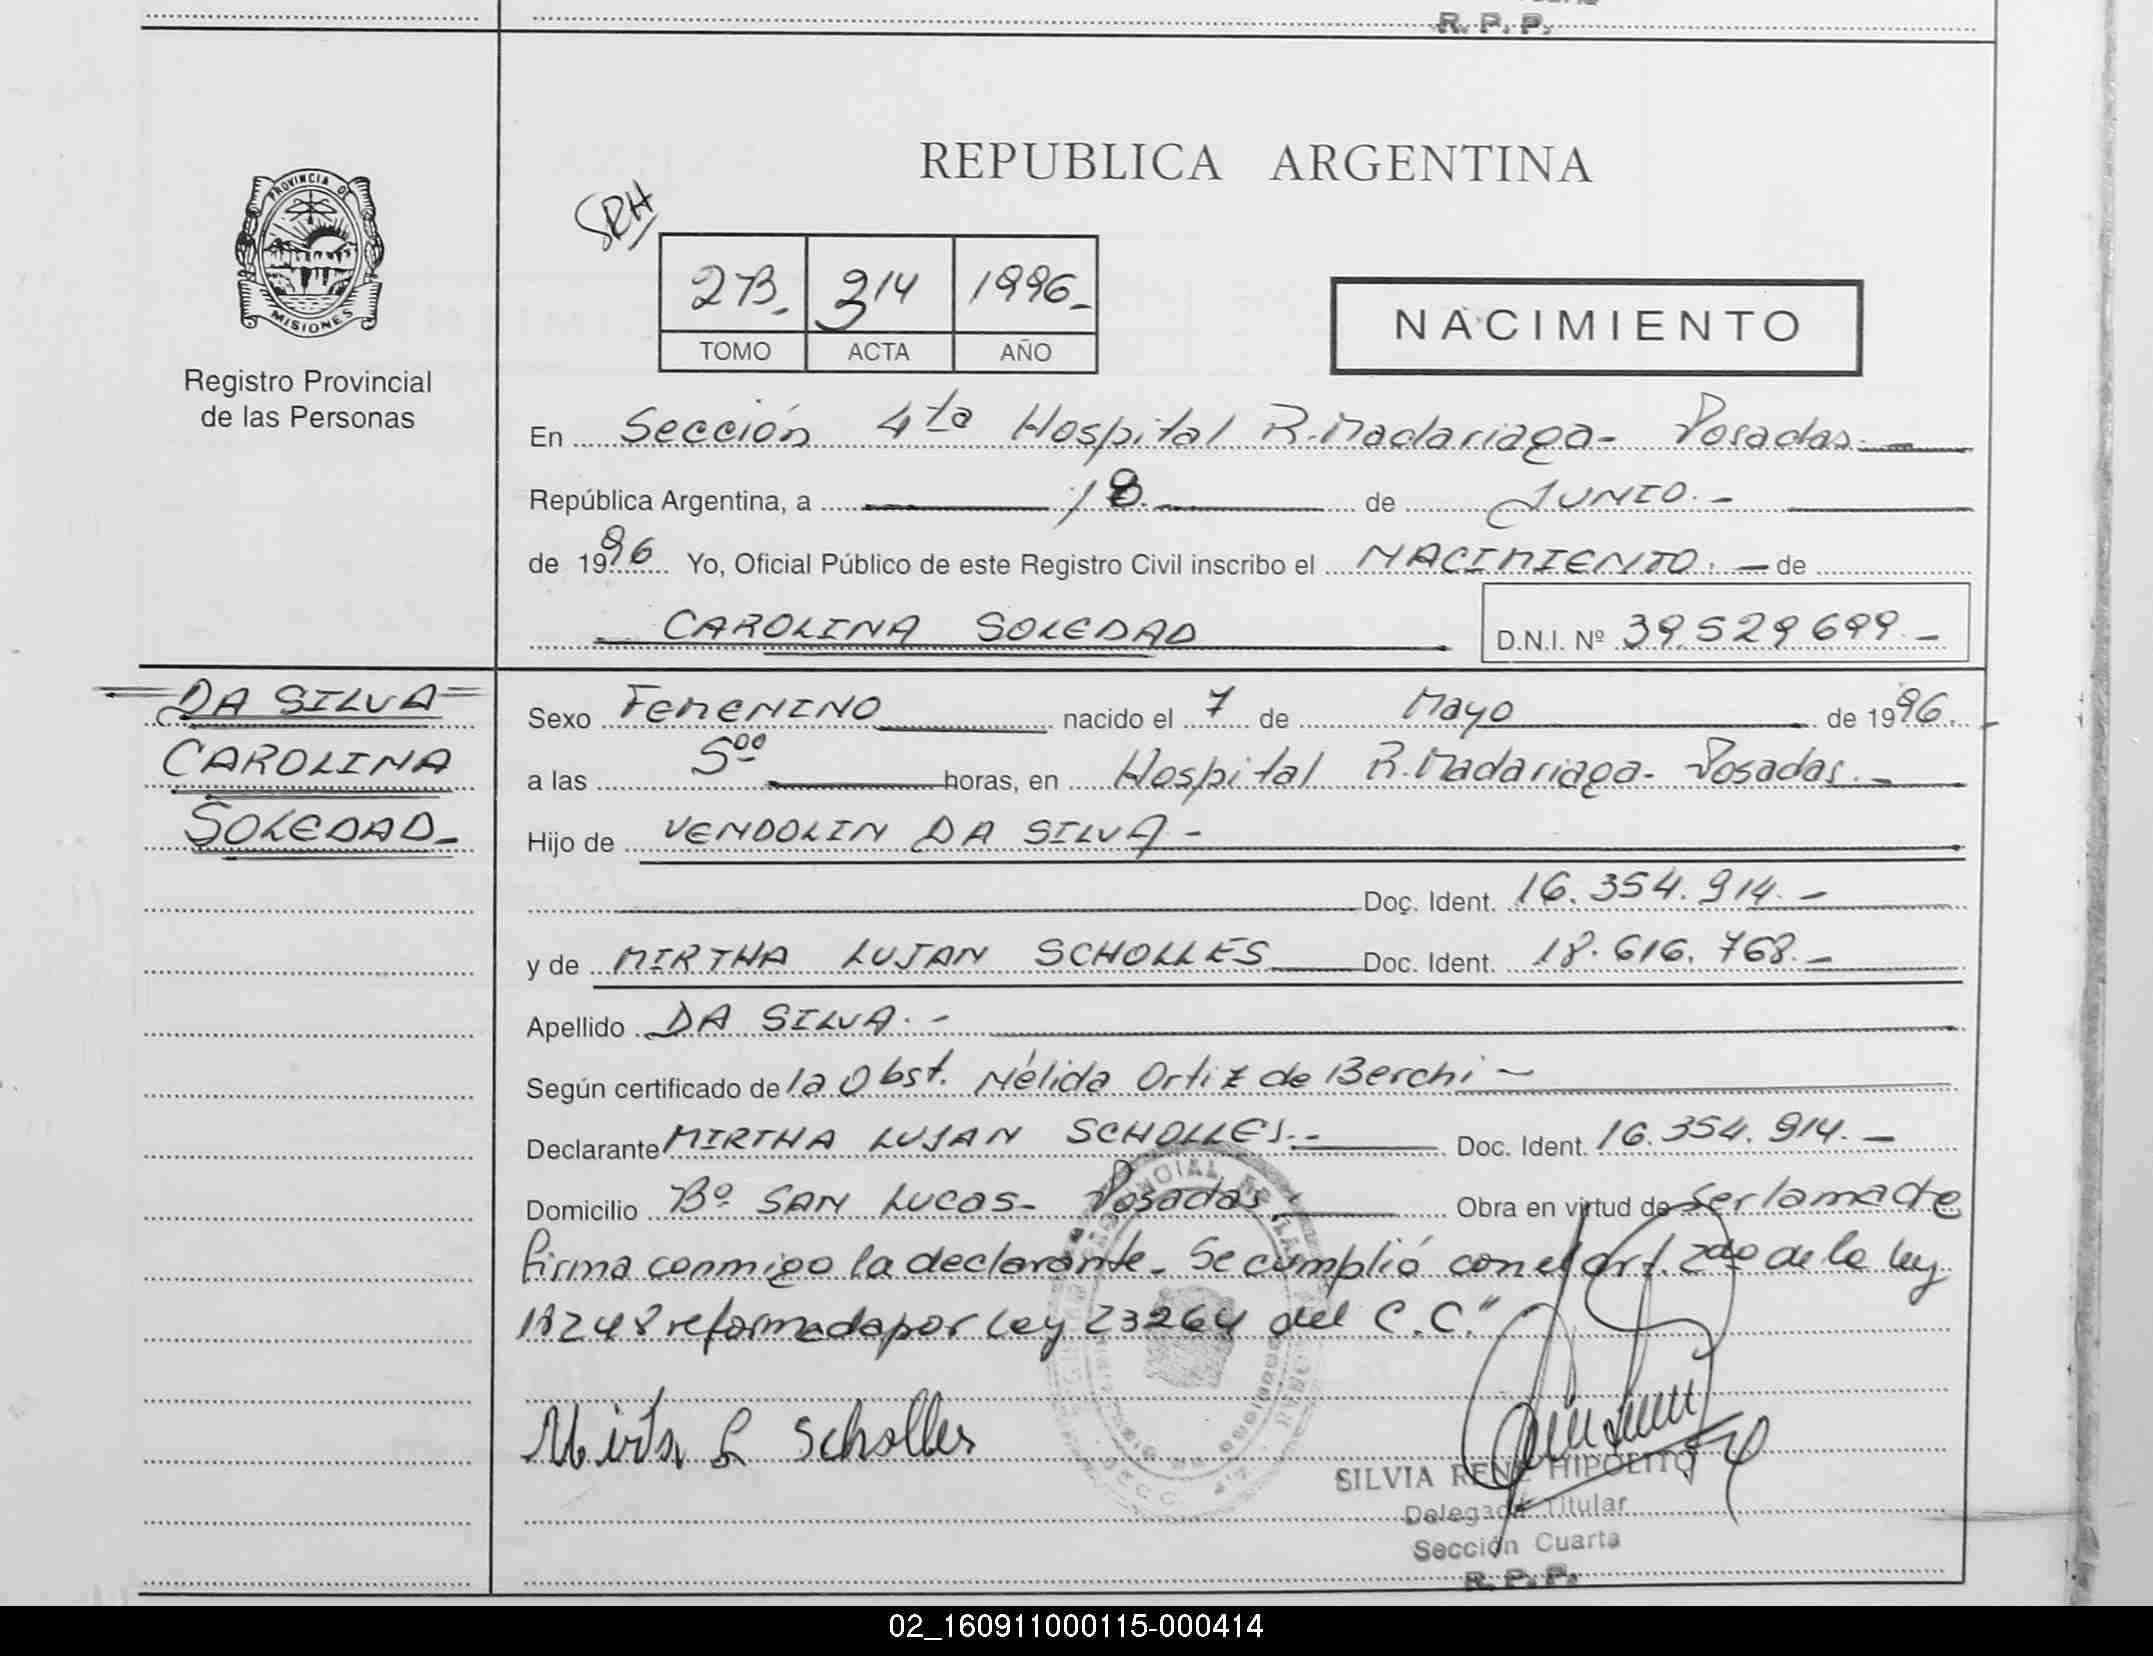 R. P. P.
PROVINCIA D
MISIONES
Registro Provincial
de las Personas
REPUBLICA ARGENTINA
SRH
2B.- 314 1996-
TOMO ACTA AÑO
NACIMIENTO
En Sección 4ta Hospital R. Madariaga- Posadas.-
República Argentina, a 18. de JUNIO.-
de 1996 Yo, Oficial Público de este Registro Civil inscribo el NACIMIENTO.- de
CAROLINA SOLEDAD D.N.I. Nº 39.529.699.-
DA SILVA
CAROLINA
SOLEDAD-
Sexo FEMENINO nacido el 7 de Mayo de 1996.
a las 5ºº horas, en Hospital R. Madariaga- Posadas.-
Hijo de VENDOLIN DA SILVA-
Doc. Ident. 16.354.914.-
y de MIRTHA LUJAN SCHOLLES Doc. Ident. 18.616.768.-
Apellido DA SILVA.-
Según certificado de la Obst. Nélida Ortiz de Berchi-
Declarante MIRTHA LUJAN SCHOLLES.- Doc. Ident. 16.354.914.-
Domicilio Bº SAN LUCAS- Posadas.- Obra en virtud de ser la madre
firma conmigo la declarante. Se cumplió con el art. 2do de la ley
18248 reformada por ley 23264 del C.C."
Mirta L Scholles
SILVIA RENE HIPOLITO
Delegada Titular
Sección Cuarta
R. P. P.
02_160911000115-000414